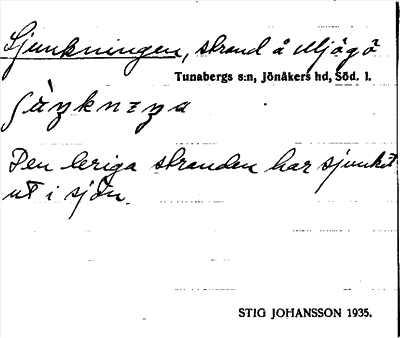 Sjunkningen, strand å Mjögö
Tunabergs s:n, Jönåkers hd, Söd. l.
Den leriga stranden har sjunkit
ut i sjön.
STIG JOHANSSON 1935.